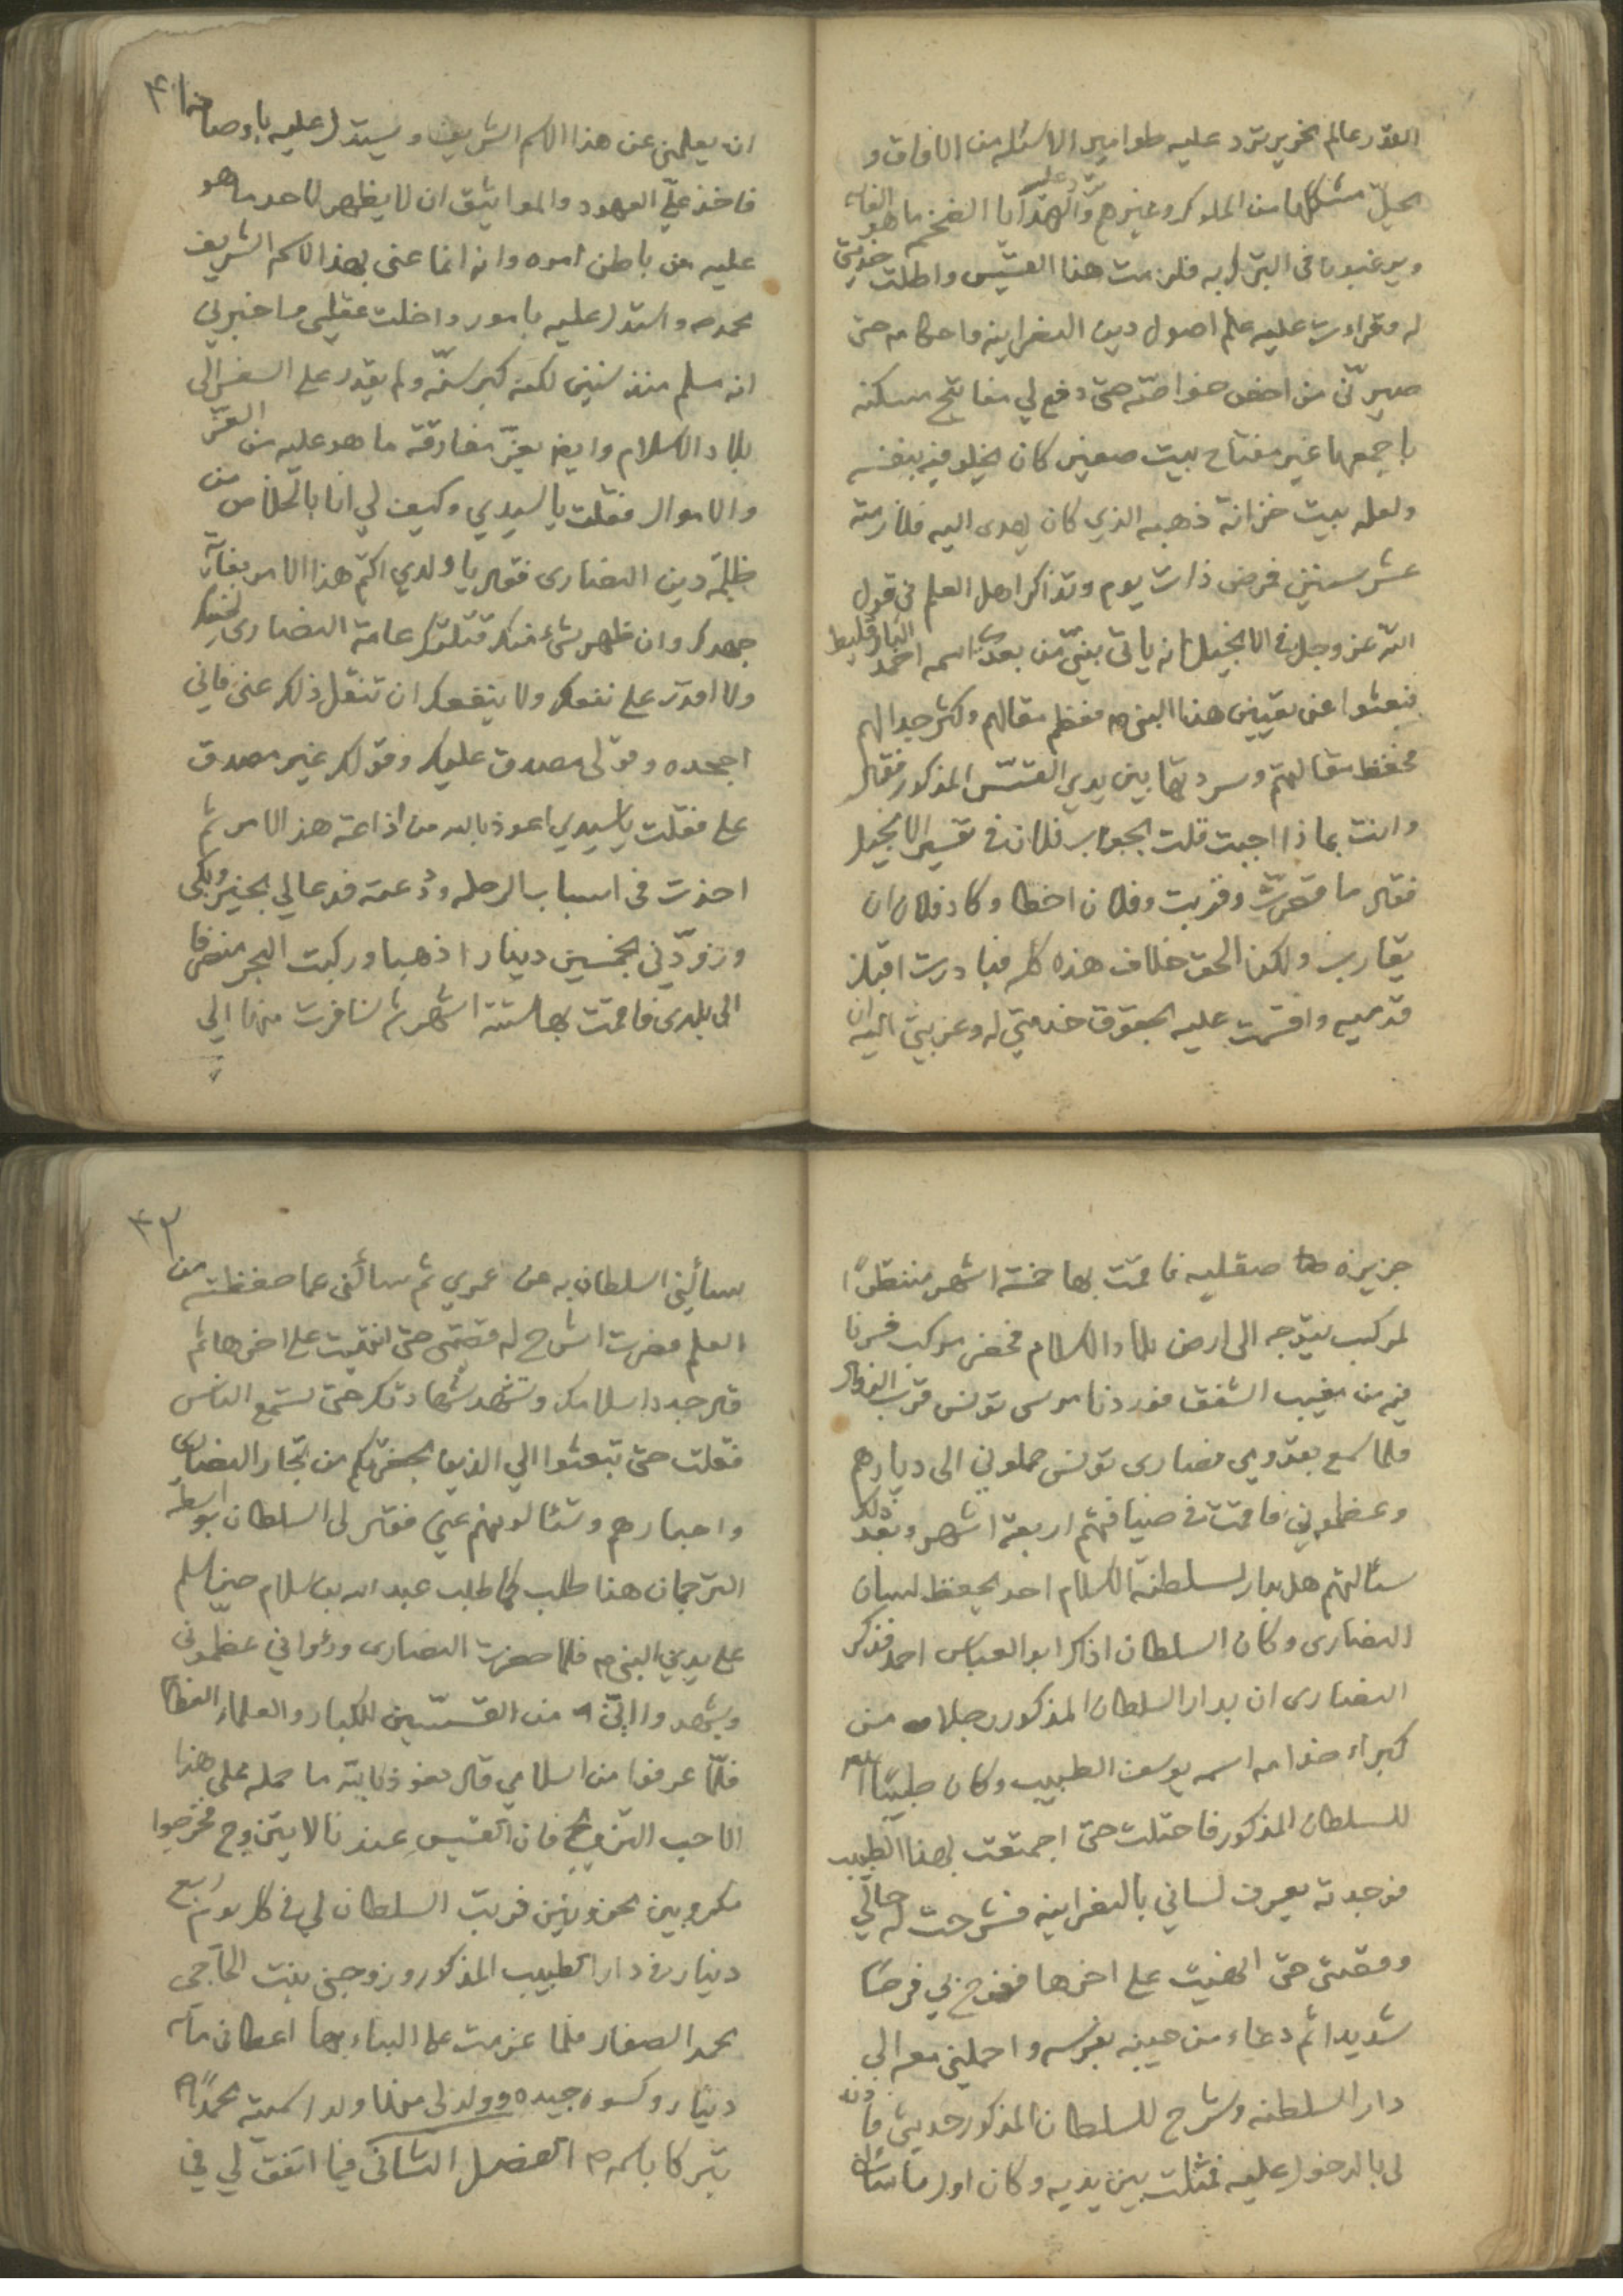 القدر عالم نحرير ترد عليه طوامير الاسئله من الافاق و
بحل مشكلاتها من الملوك وغيرهم وترد عليه الهدايا الضخم ما هو الغايه
ويرغبون في التبرك به فلزمت هذا القسيس واطلت خدمتي
له وقراءت عليه علم اصول دين النصرانيه واحكامه حتى
صيرني من اخص خواصه حتى دفع لي مفاتيح مسكنه
باجمعها غير مفتاح بيت صغير كان يخلو فيه بنفسه
ولعله بيت خزانة ذهبه الذي كان يهدى اليه فلازمته
عشر سنين فمرض ذات يوم وتذاكر اهل العلم في قول
الله عز وجل في الانجيل انه ياتى بنبي من بعدي اسمه احمد البارقليط
فبحثوا عن تعيين هذا النبي ص فعظم مقالهم وكثر جدالهم
فحفظت مقالهتم وسردتها بين يدي القسيس المذكور فقال
وانت بماذا اجبت قلت بجواب فلان في تفسير الانجيل
فقال ما قصرت وقربت وفلان اخطا وكاد فلان ان
يقارب ولكن الحق خلاف هذه كله فبادرت اقبل
قدميه واقسمت عليه بحقوق خدمتي له وغربتي اليه ان
۴۱
ان يعلمني عن هذا الاسم الشريف ويستدل عليه باوصافه
فاخذ علي العهود والمواثيق ان لا يظهر لاحد ما هو
عليه من باطن امره وانه انما عنى بهذا الاسم الشريف
محمد ص واستدل عليه بامور داخلت عقلي واخبرني
انه مسلم منذ سنين لكنه كبر سنه ولم يقدر على السفر الى
بلاد الاسلام وايضا يعز مفارقة ما هو عليه من العز
والاموال فقلت يا سيدي وكيف لي انا بالخلاص من
ظلمة دين النصارى فقال يا ولدي اكتم هذا الامر بغاية
جهدك وان ظهر شئ منك قتلتك عامة النصارى لحينك
ولا اقدر على نفعك ولا ينفعك ان تنقل ذلك عني فاني
اجحده وقولى مصدق عليك وقولك غير مصدق
على فقلت يا سيدي اعوذ بالله من اذاعة هذا الامر ثم
اخذت في اسباب الرحله ودعته فدعا لي بخير وبكى
وزودني بخمسين دينارا ذهبا وركبت البحر منصرفا
الى بلدى فاقمت بها ستة اشهر ثم سافرت منها الي
جزيرة صقليه فاقمت بها خمسة اشهر منتظرا
لمركب يتوجه الى ارض بلاد الاسلام فحضر مركب فسرنا
فيه من مغيب الشفق فوردنا مرسى تونس قرب الزوال
فلما سمع بقدومي نصارى تونس حملوني الى ديارهم
وعظموني فاقمت في ضيافتهم اربعة اشهر وبعد ذلك
سئالتهم هل بدار لسلطنة الاسلام احد يحفظ لسان
النصارى وكان السلطان اذاك ابو العباس احمد فذكر
النصارى ان بدار السلطان المذكور رجلا من
كبراء خدامه اسمه يوسف الطبيب وكان طبيبا
للسلطان المذكور فاحتلت حتى اجتمعت بهذا الطبيب
فوجدته يعرف لساني بالنصرانيه فشرحت له حالي
وقصتى حتى انهيت على اخرها ففرح بي فرحا
شديدا ثم دعاء من حينه بفرسه واحملني معه الى
دار السلطنه وشرح للسلطان المذكور حديثي فاذن
لى بالدخول عليه فمثلت بين يديه وكان اول ما سئال
۴۲
سألني السلطان به عن عمري ثم سألنى عما حفظته من
العلم فصرت اشرح له قصتى حتى انتهيت على اخرها ثم
قال جدد اسلامك وتشهد شهادتك حتى نستمع الناس
فقلت حتى تبعثوا الي الذين بحضرتكم من تجار النصارى
واحبارهم وتسئالونهم عني فقال لى السلطان بواسطه
الترجمان هذا طلب كما طلب عبد الله بن سلام حين اسلم
على يدي النبي ص فلما حضرت النصارى ورءواني عظموني
وشهدوا اني من القسيسين الكبار والعلماء العظام
فلما عرفوا من اسلامي قال نعوذ بالله ما حمله على هذا
الا حب التزويج فان القسيس عندنا لا يتزوج فخرجوا
مكروبين محزونين فرتب السلطان لي في كل يوم اربع
دينار في دار الطبيب المذكور وزوجني بنت الحاجي
محمد الصفار فلما عزمت على البناء بها اعطاني مأه
دينار وكسوه جيده وولد لي منها ولد اسميته محمدا
تبركا باسمه ص الفصل الثاني فيما اتفق لي في